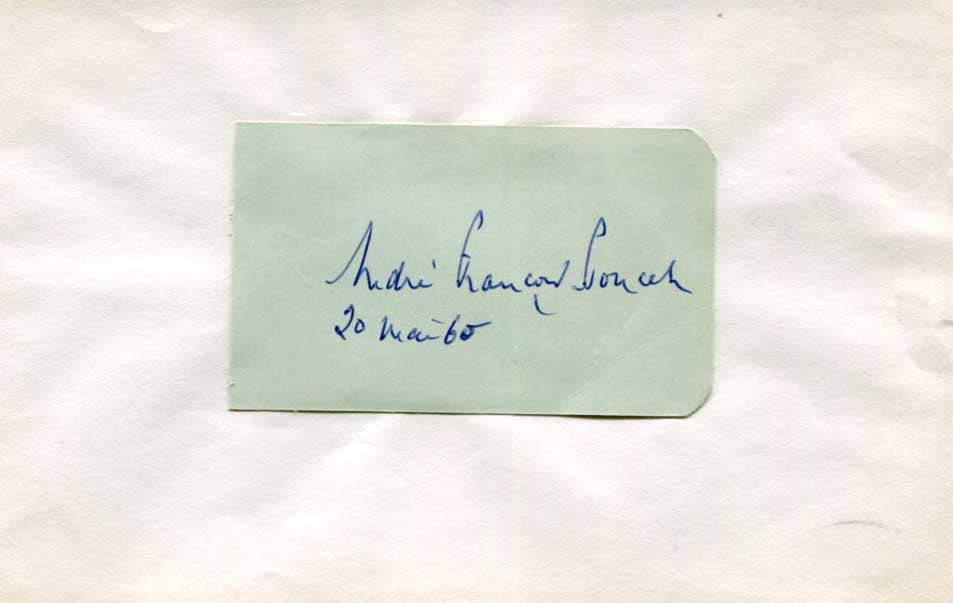 André François Poncet
20 mai 60